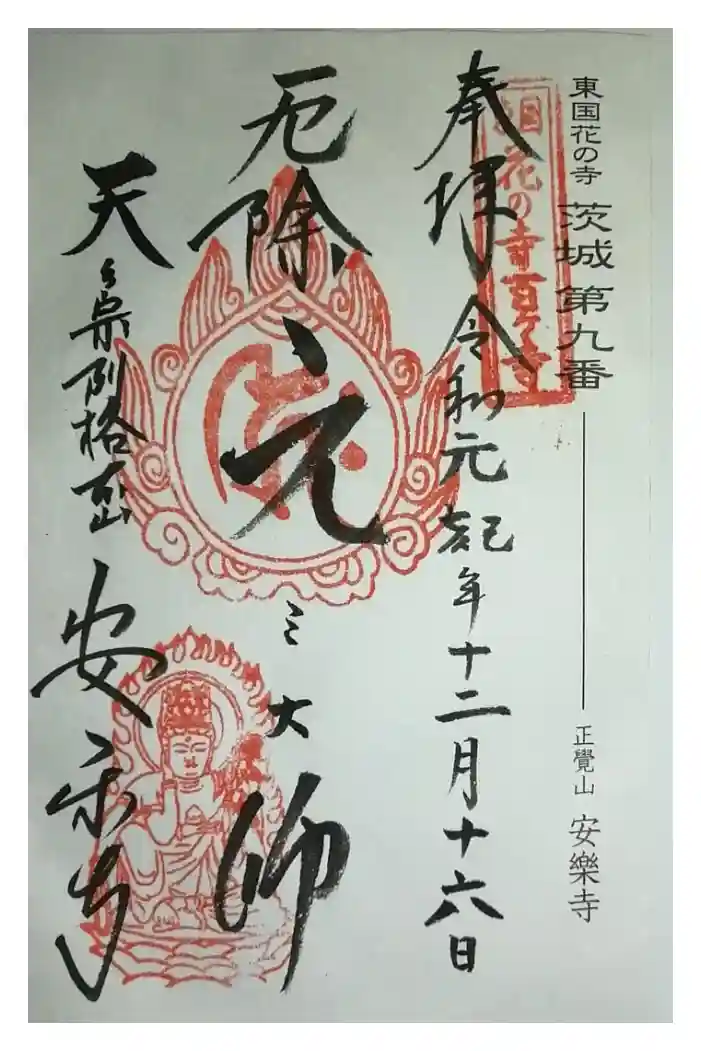 東国花の寺 茨城 第九番 正覺山 安樂寺
国花の寺百ヶ寺
奉拝 令和元己亥年十二月十六日
厄除 元三大師
天台宗別格本山 安楽寺